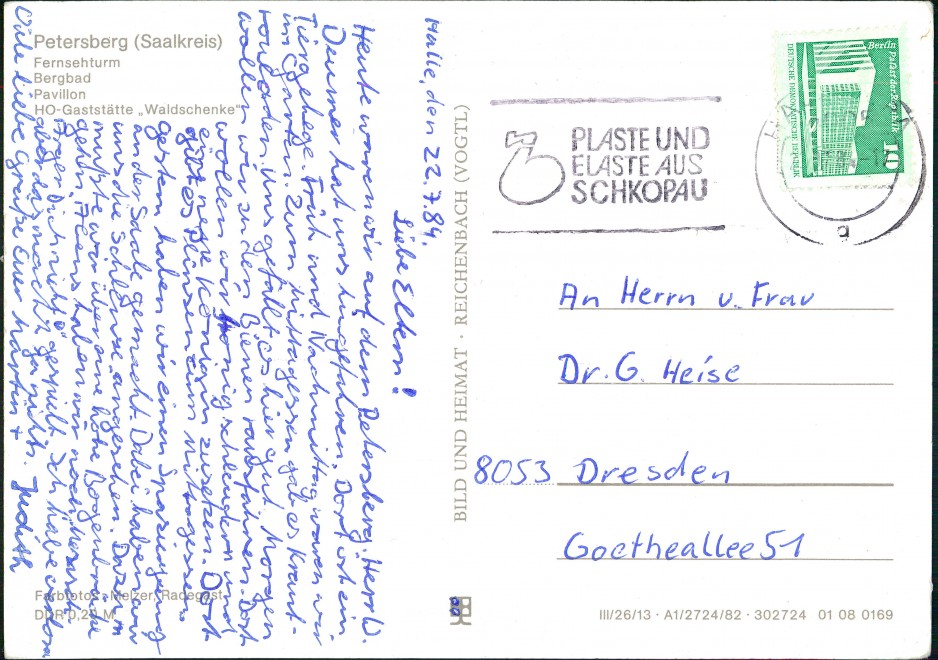 Petersberg (Saalkreis)
Fernsehturm
Bergbad
Pavillon
HO-Gaststätte „Waldschenke"
Halle, den 22.7.84.
Liebe Eltern!
Heute waren wir auf dem Petersberg. Herr W.
Deumer hat uns hingefahren. Dort ist ein
Tiergehege. Früh und Nachmittag waren wir
im Garten. Zum Mittagessen gab es Kraut-
rouladen. Uns gefällt es hier gut. Morgen
wollen wir zu den Bienen rausfahren. Dort
wollen wir Honig schleudern und
eine neue Königin zusetzen. Dort
gibt es Plinsen zum Mittagessen.
gestern haben wir einen Spaziergang
an der Saale gemacht. Dabei haben wir
uns die Schleuse angesehen. Dazu
mußte wir über eine hohe Bogenbrücke
gehn. Tiens haben wir noch
gespielt. Ich habe verloren
aber das macht gar nichts.
Viele liebe Grüße Euer Martin + Judith
Farbfotos: Melzer, Radegast
DDR 0,20 M
BILD UND HEIMAT · REICHENBACH (VOGTL)
PLASTE UND
ELASTE AUS
SCHKOPAU
Berlin Palast der Republik
DEUTSCHE DEMOKRATISCHE REPUBLIK
10
g
An Herrn u. Frau
Dr. G. Heise
8053 Dresden
Goetheallee 51
III/26/13 · A1/2724/82 · 302724 01 08 0169